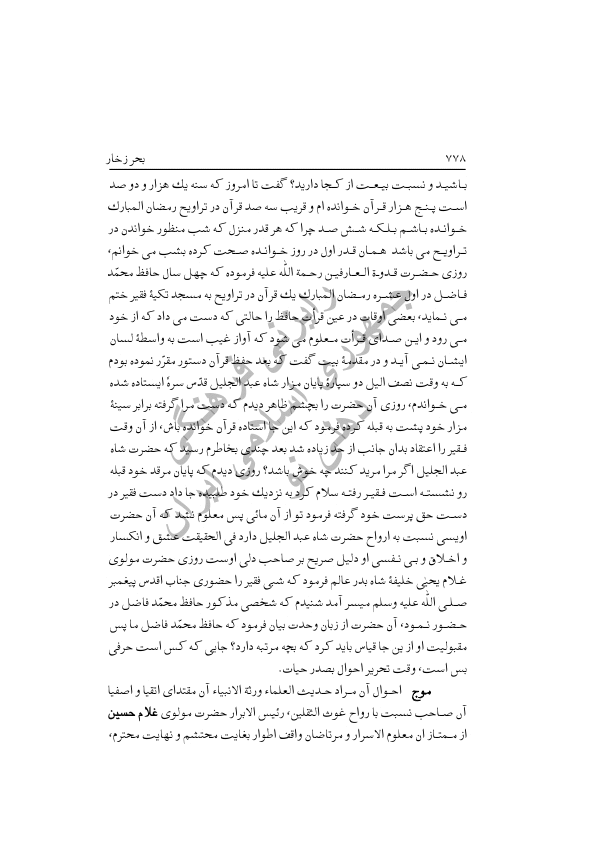 ۷۷۸ بحر زخار
باشید و نسبت بیعت از کجا دارید؟ گفت تا امروز که سنه یك هزار و دو صد
است پنج هزار قرآن خوانده ام و قریب سه صد قرآن در تراویح رمضان المبارك
خوانده باشم بلکه شش صد چرا که هر قدر منزل که شب منظور خواندن در
تراویح می باشد همان قدر اول در روز خوانده صحت کرده بشب می خوانم،
روزی حضرت قدوة العارفین رحمة الله علیه فرموده که چهل سال حافظ محمّد
فاضل در اول عشره رمضان المبارك یك قرآن در تراویح به مسجد تکیۀ فقیر ختم
می نماید، بعضی اوقات در عین قرأت حافظ را حالتی که دست می داد که از خود
می رود و این صدای قرأت معلوم می شود که آواز غیب است به واسطۀ لسان
ایشان نمی آید و در مقدمۀ بیت گفت که بعد حفظ قرآن دستور مقرّر نموده بودم
که به وقت نصف الیل دو سیارۀ پایان مزار شاه عبد الجلیل قدّس سرۀ ایستاده شده
می خواندم، روزی آن حضرت را بچشم ظاهر دیدم که دست مرا گرفته برابر سینۀ
مزار خود پشت به قبله کرده فرمود که این جا استاده قرآن خوانده باش، از آن وقت
فقیر را اعتقاد بدان جانب از حد زیاده شد بعد چندی بخاطرم رسید که حضرت شاه
عبد الجلیل اگر مرا مرید کنند چه خوش باشد؟ روزی دیدم که پایان مرقد خود قبله
رو نشسته است فقیر رفته سلام کرد به نزدیك خود طلبیده جا داد دست فقیر در
دست حق پرست خود گرفته فرمود تو از آن مائی پس معلوم نشد که آن حضرت
اویسی نسبت به ارواح حضرت شاه عبد الجلیل دارد فی الحقیقت عشق و انکسار
و اخلاق و بی نفسی او دلیل صریح بر صاحب دلی اوست روزی حضرت مولوی
غلام یحیٰی خلیفۀ شاه بدر عالم فرمود که شبی فقیر را حضوری جناب اقدس پیغمبر
صلی الله علیه وسلم میسر آمد شنیدم که شخصی مذکور حافظ محمّد فاضل در
حضور نمود، آن حضرت از زبان وحدت بیان فرمود که حافظ محمّد فاضل ما پس
مقبولیت او از ین جا قیاس باید کرد که بچه مرتبه دارد؟ جایی که کس است حرفی
بس است، وقت تحریر احوال بصدر حیات.
موج احوال آن مراد حدیث العلماء ورثة الانبیاء آن مقتدای اتقیا و اصفیا
آن صاحب نسبت با رواح غوث الثقلین، رئیس الابرار حضرت مولوی غلام حسین
از ممتاز ان معلوم الاسرار و مرتاضان واقف اطوار بغایت محتشم و نهایت محترم،
رایزنی فرهنگی
جمهوری اسلامی ایران
دهلی نو